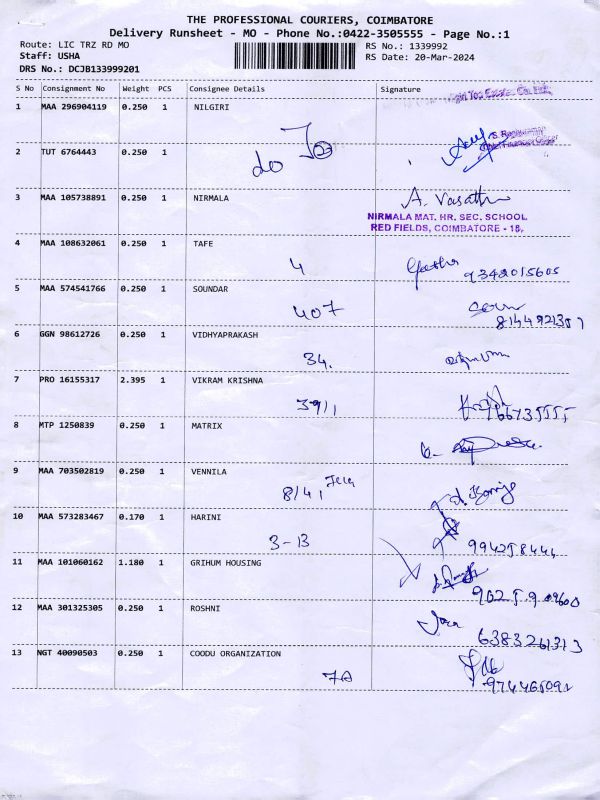 THE PROFESSIONAL COURIERS, COIMBATORE
Delivery Runsheet - MO - Phone No.:0422-3505555 - Page No.:1
Route: LIC TRZ RD MO RS No.: 1339992
Staff: USHA RS Date: 20-Mar-2024
DRS No.: DCJB133999201
S No Consignment No Weight PCS Consignee Details Signature
1 MAA 296904119 0.250 1 NILGIRI
2 TUT 6764443 0.250 1
do
3 MAA 105738891 0.250 1 NIRMALA
A. Vasanth
NIRMALA MAT. HR. SEC. SCHOOL
RED FIELDS, COIMBATORE - 18.
4 MAA 108632061 0.250 1 TAFE
4 9342015605
5 MAA 574541766 0.250 1 SOUNDAR
407
6 GGN 98612726 0.250 1 VIDHYAPRAKASH
34.
7 PRO 16155317 2.395 1 VIKRAM KRISHNA
39/1
8 MTP 1250839 0.250 1 MATRIX
9 MAA 703502819 0.250 1 VENNILA
8/41
10 MAA 573283467 0.170 1 HARINI
3-13
11 MAA 101060162 1.180 1 GRIHUM HOUSING
12 MAA 301325305 0.250 1 ROSHNI
6383261313
13 NGT 40090503 0.250 1 COODU ORGANIZATION
7A